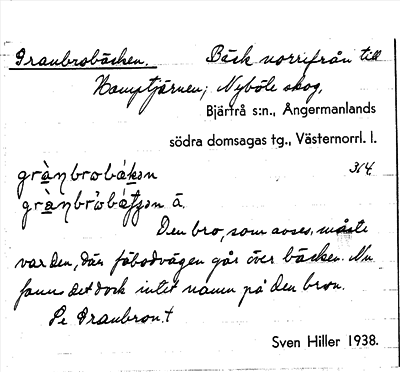 Granbrobäcken. Bäck norrifrån till
Hamptjärnen; Nyböle skog,
Bjärtrå s:n., Ångermanlands
södra domsagas tg., Västernorrl. l.
314.
grànbrobákən
Den bro, som avses, måste
var den, där fäbodvägen går över bäcken. Nu
fanns det dock intet namn på den bron.
Se Granbron. †
Sven Hiller 1938.